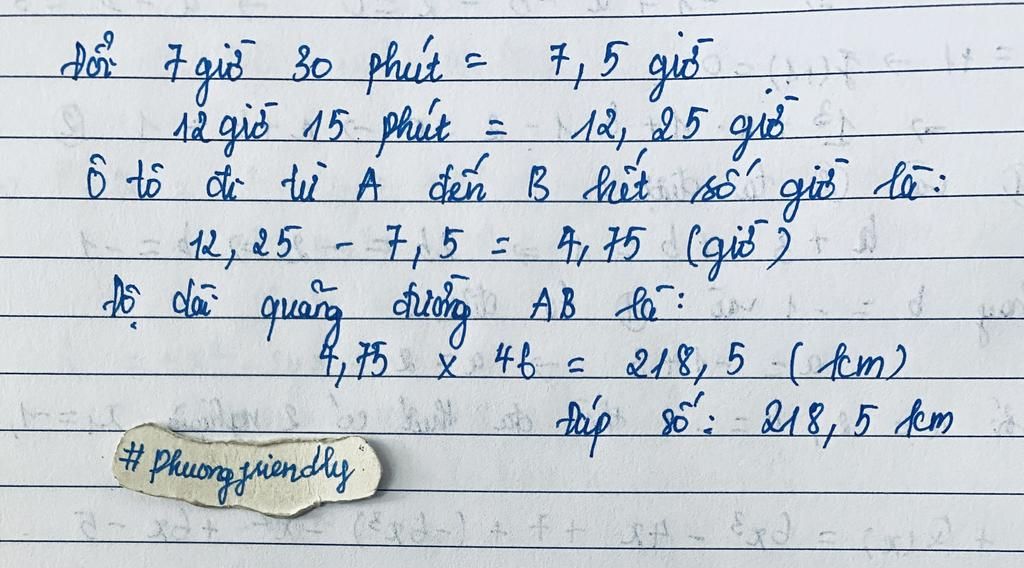 Đổi 7 giờ 30 phút = 7,5 giờ
12 giờ 15 phút = 12,25 giờ
Ô tô đi từ A đến B hết số giờ là:
12,25 - 7,5 = 4,75 (giờ)
Độ dài quãng đường AB là:
4,75 x 46 = 218,5 (km)
Đáp số: 218,5 km
# phuongfriendly